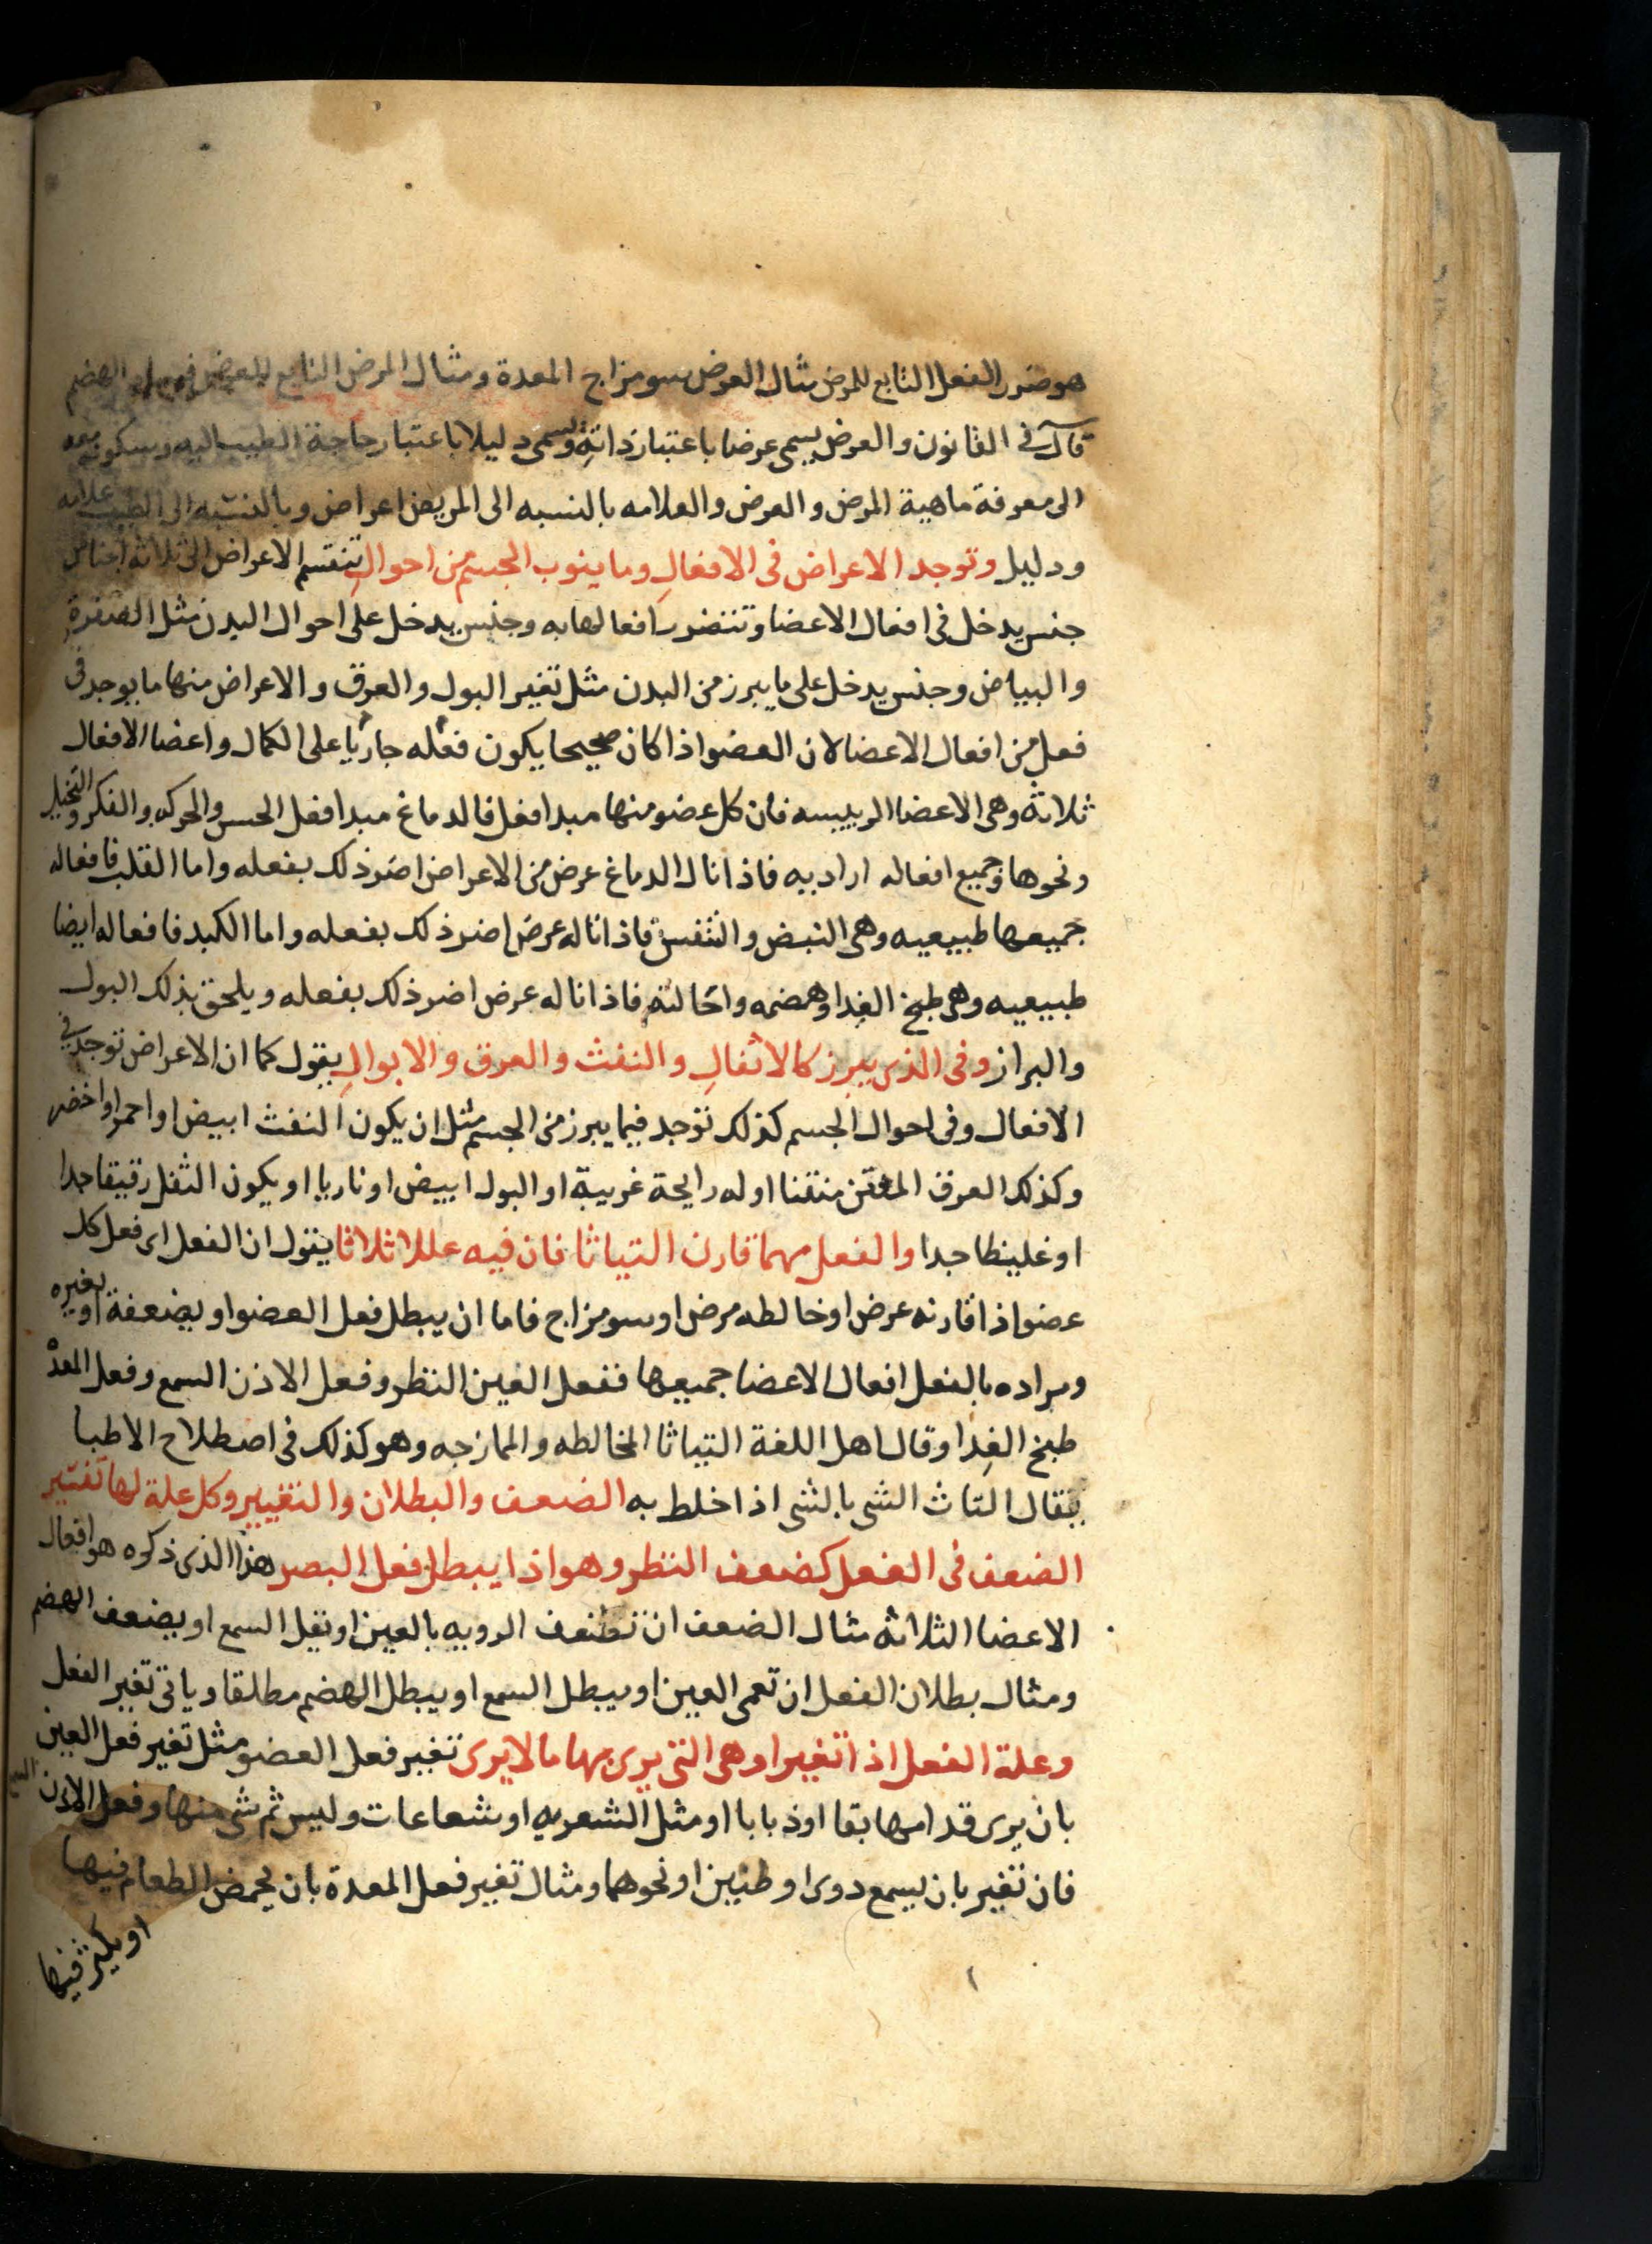 هو ضرر الفعل التابع للمرض مثال العرض سو مزاج المعدة ومثال المرض التابع للعرض الهضم
قال في القانون والعرض يسمى عرضا باعتبار ذاته ويسمى دليلا باعتبار حاجة الطبيب اليه وسكونه معه
الى معرفة ماهية المرض والعرض والعلامه بالنسبه الى المريض اعراض وبالنسبه الى الطبيب علامه
ودليل وتوجد الاعراض فى الافعالِ وما ينوب الجسم من احوالِ تنقسم الاعراض الى ثلاثة اجناس
جنس يدخل فى افعال الاعضا وتنضرر افعالها به وجنس يدخل على احوال البدن مثل الصفرة
والبياض وجنس يدخل على ما يبرز من البدن مثل تغير البول والعرق والاعراض منها ما يوجد فى
فعل من افعال الاعضا لان العضو اذا كان صحيحا يكون فعله جاريا على الكمال واعضا الافعال
ثلاثة وهى الاعضا الرييسه فان كل عضو منها مبدا فعل فالدماغ مبدا فعل الحس والحركه والفكر والتخيل
ونحوها وجميع افعاله اراديه فاذا نال الدماغ عرض من الاعراض اضر ذلك بفعله واما القلب فافعاله
جميعها طبيعيه وهى النبض والتنفس فاذا ناله عرض اضر ذلك بفعله واما الكبد فافعاله ايضا
طبيعيه وهى طبخ الغدا وهضمه واحالته فاذا ناله عرض اضر ذلك بفعله ويلحق بذلك البول
والبراز وفى الذى يبرز كالاثفالِ والنفث والعرق والابوالِ يقول كما ان الاعراض توجد في
الافعال وفى احوال الجسم كذلك توجد فيما يبرز من الجسم مثل ان يكون النفث ابيض او احمر او اخضر
وكذلك العرق منتنا او له رايحة غريبة او البول ابيض او ناريا او يكون الثفل رقيقا جدا
او غليظا جدا والفعل مهما قارن التياثا فان فيه عللا ثلاثا يقول ان الفعل اى فعل كل
عضو اذا قارنه عرض او خالطه مرض او سو مزاج فاما ان يبطل فعل العضو او يضعفة او يغيره
ومراده بالفعل افعال الاعضا جميعها ففعل العين النظر وفعل الاذن السمع وفعل المعدة
طبخ الغدا وقال اهل اللغة التياثا المخالطه والممازجه وهو كذلك فى اصطلاح الاطبا
يقال التاث الشى بالشى اذا خلط به الضعف والبطلان والتغيير وكل علة لها تفتير
الضعف فى الفعل كضعف النظر وهو اذا يبطل فعل البصر هذا الذى ذكره هو افعال
الاعضا الثلاثه مثال الضعف ان تضعف الرويه بالعين او ثقل السمع او يضعف الهضم
ومثال بطلان الفعل ان تعمى العين او يبطل السمع او يبطل الهضم مطلقا وياتى تغير الفعل
وعلة الفعل اذا تغيرا وهى التى يرى بها ما لا يرى تغير فعل العضو مثل تغير فعل العين
بان يرى قدامها بقا او ذبابا او مثل الشعريه او شعاعات وليس ثم شى منها وفعل الاذن السمع
فان تغير بان يسمع دوى او طنين او نحوهما ومثال تغير فعل المعدة بان يحمض الطعام فيها
او يكثر فيها